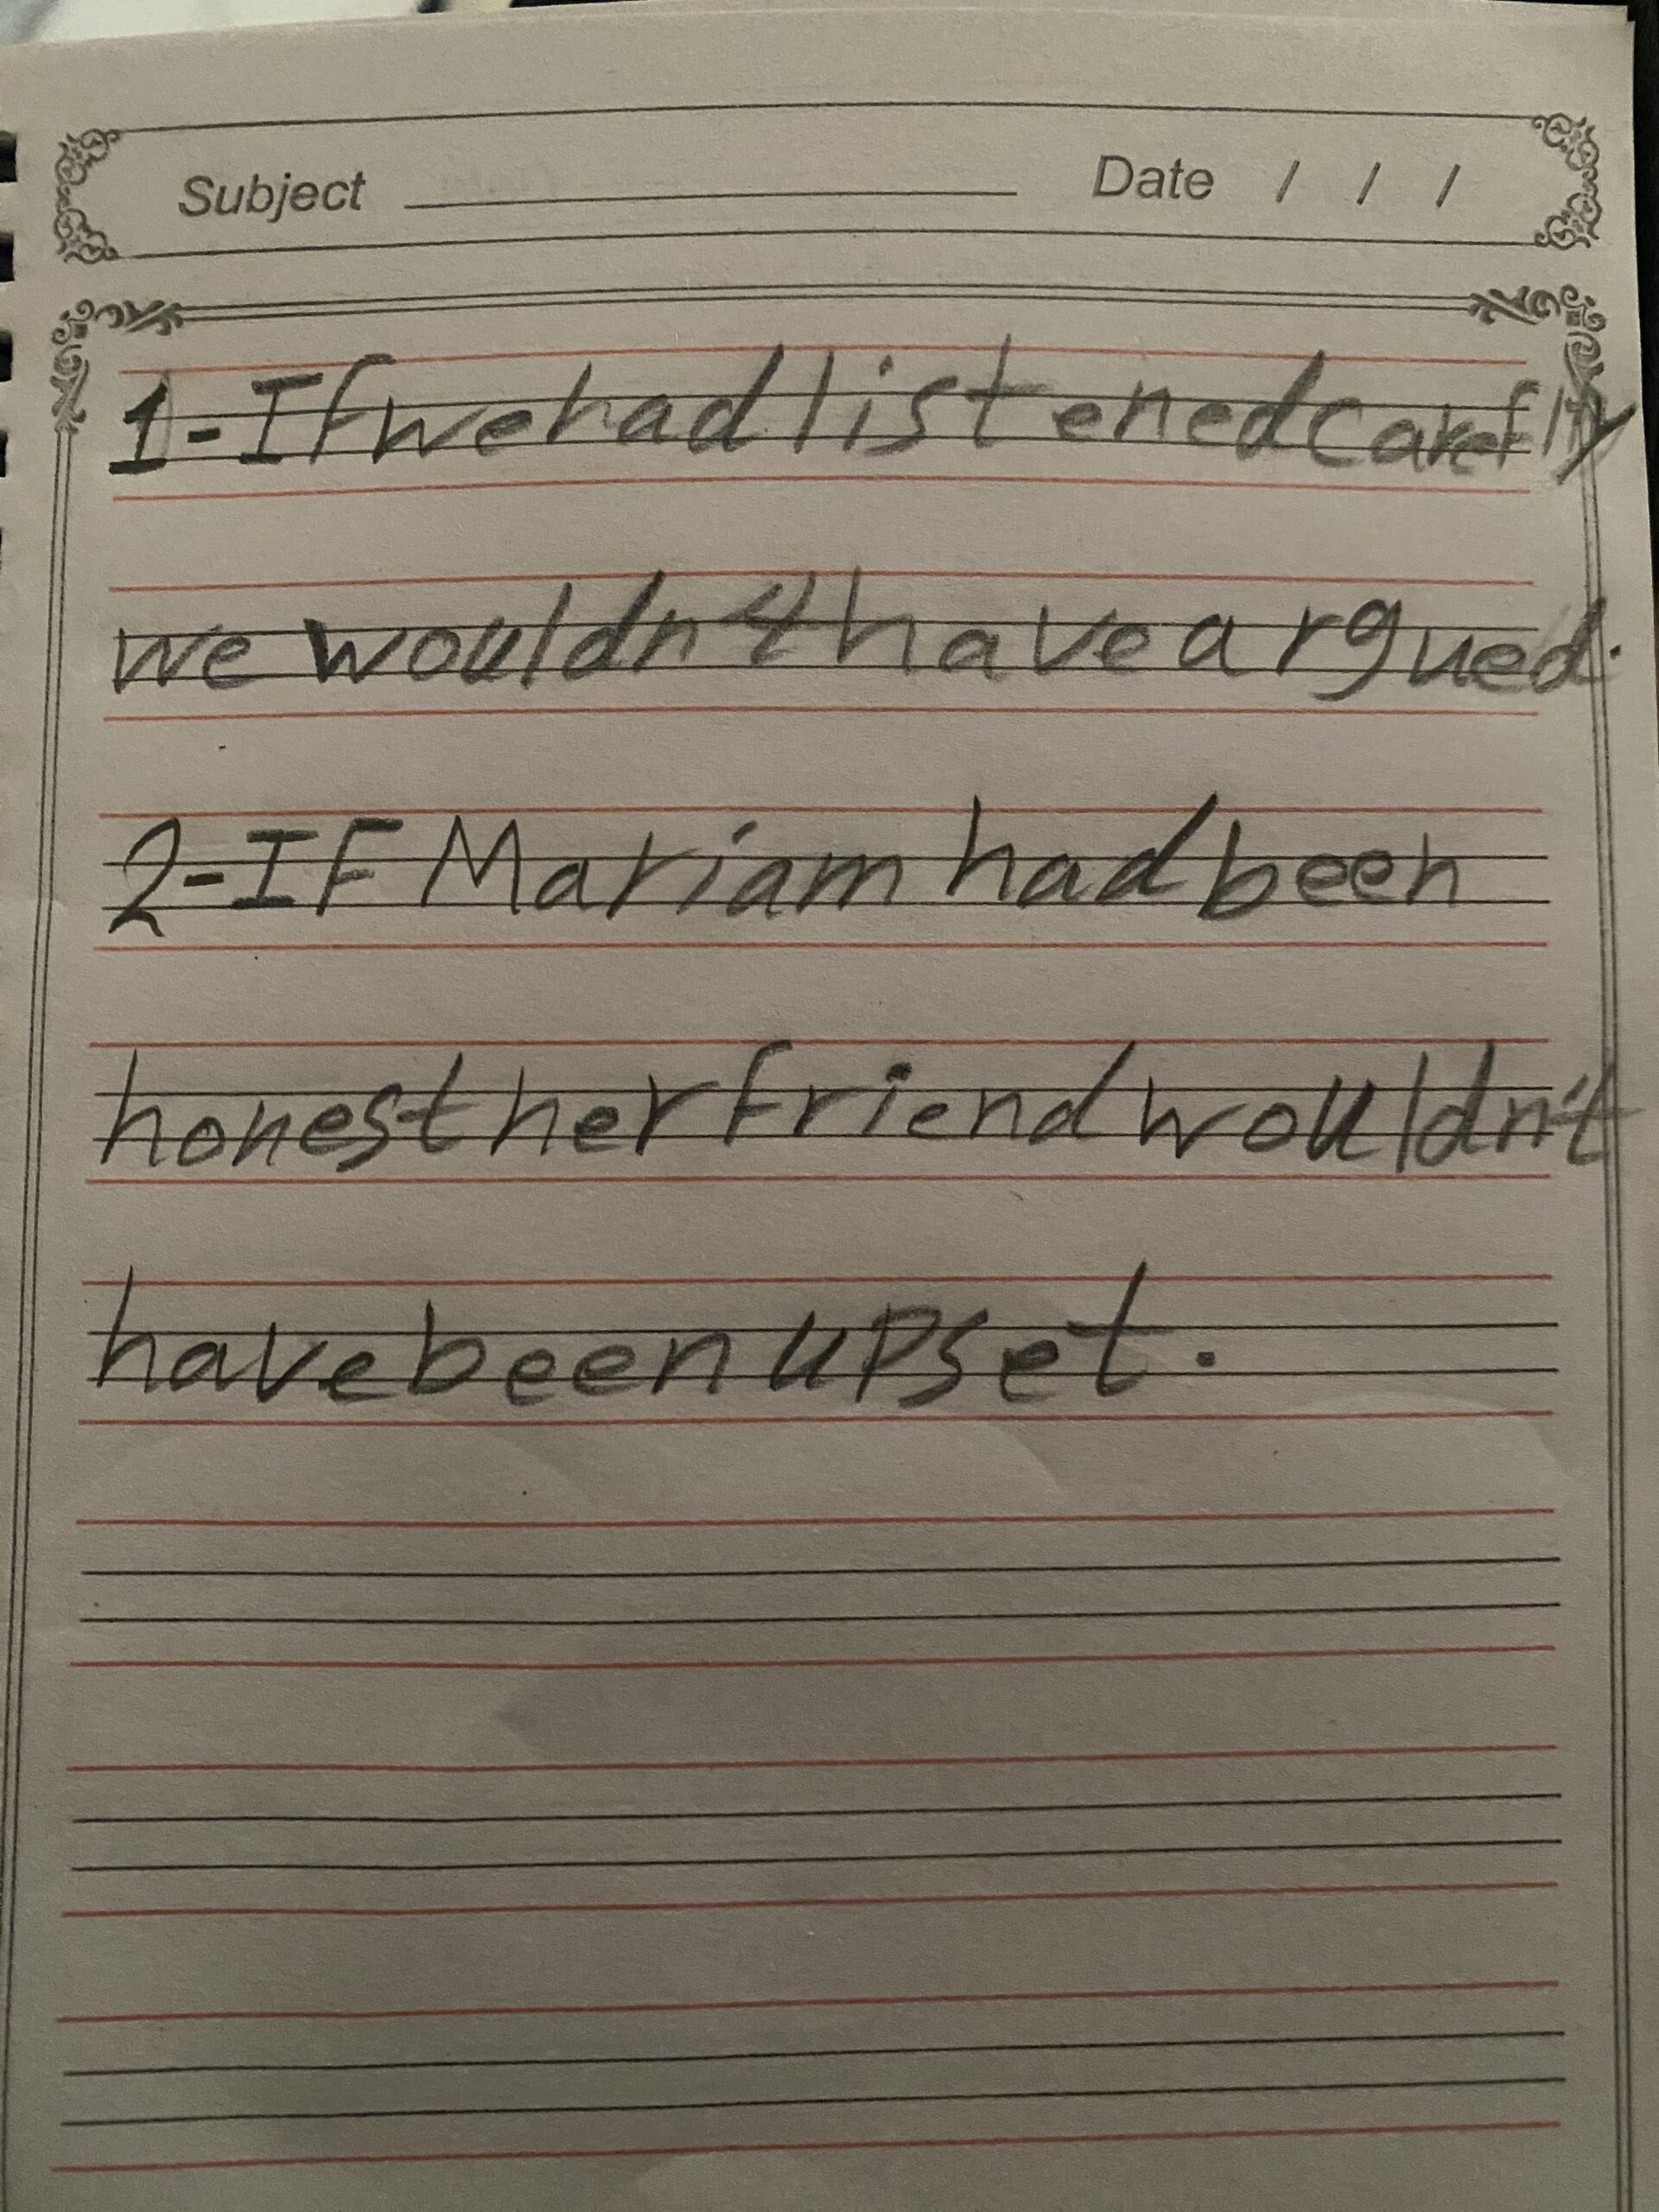 Subject Date / / /
1-If we had listened carefly
we wouldn't have argued.
2-IF Mariam had been
honest her friend wouldn't
have been upset.